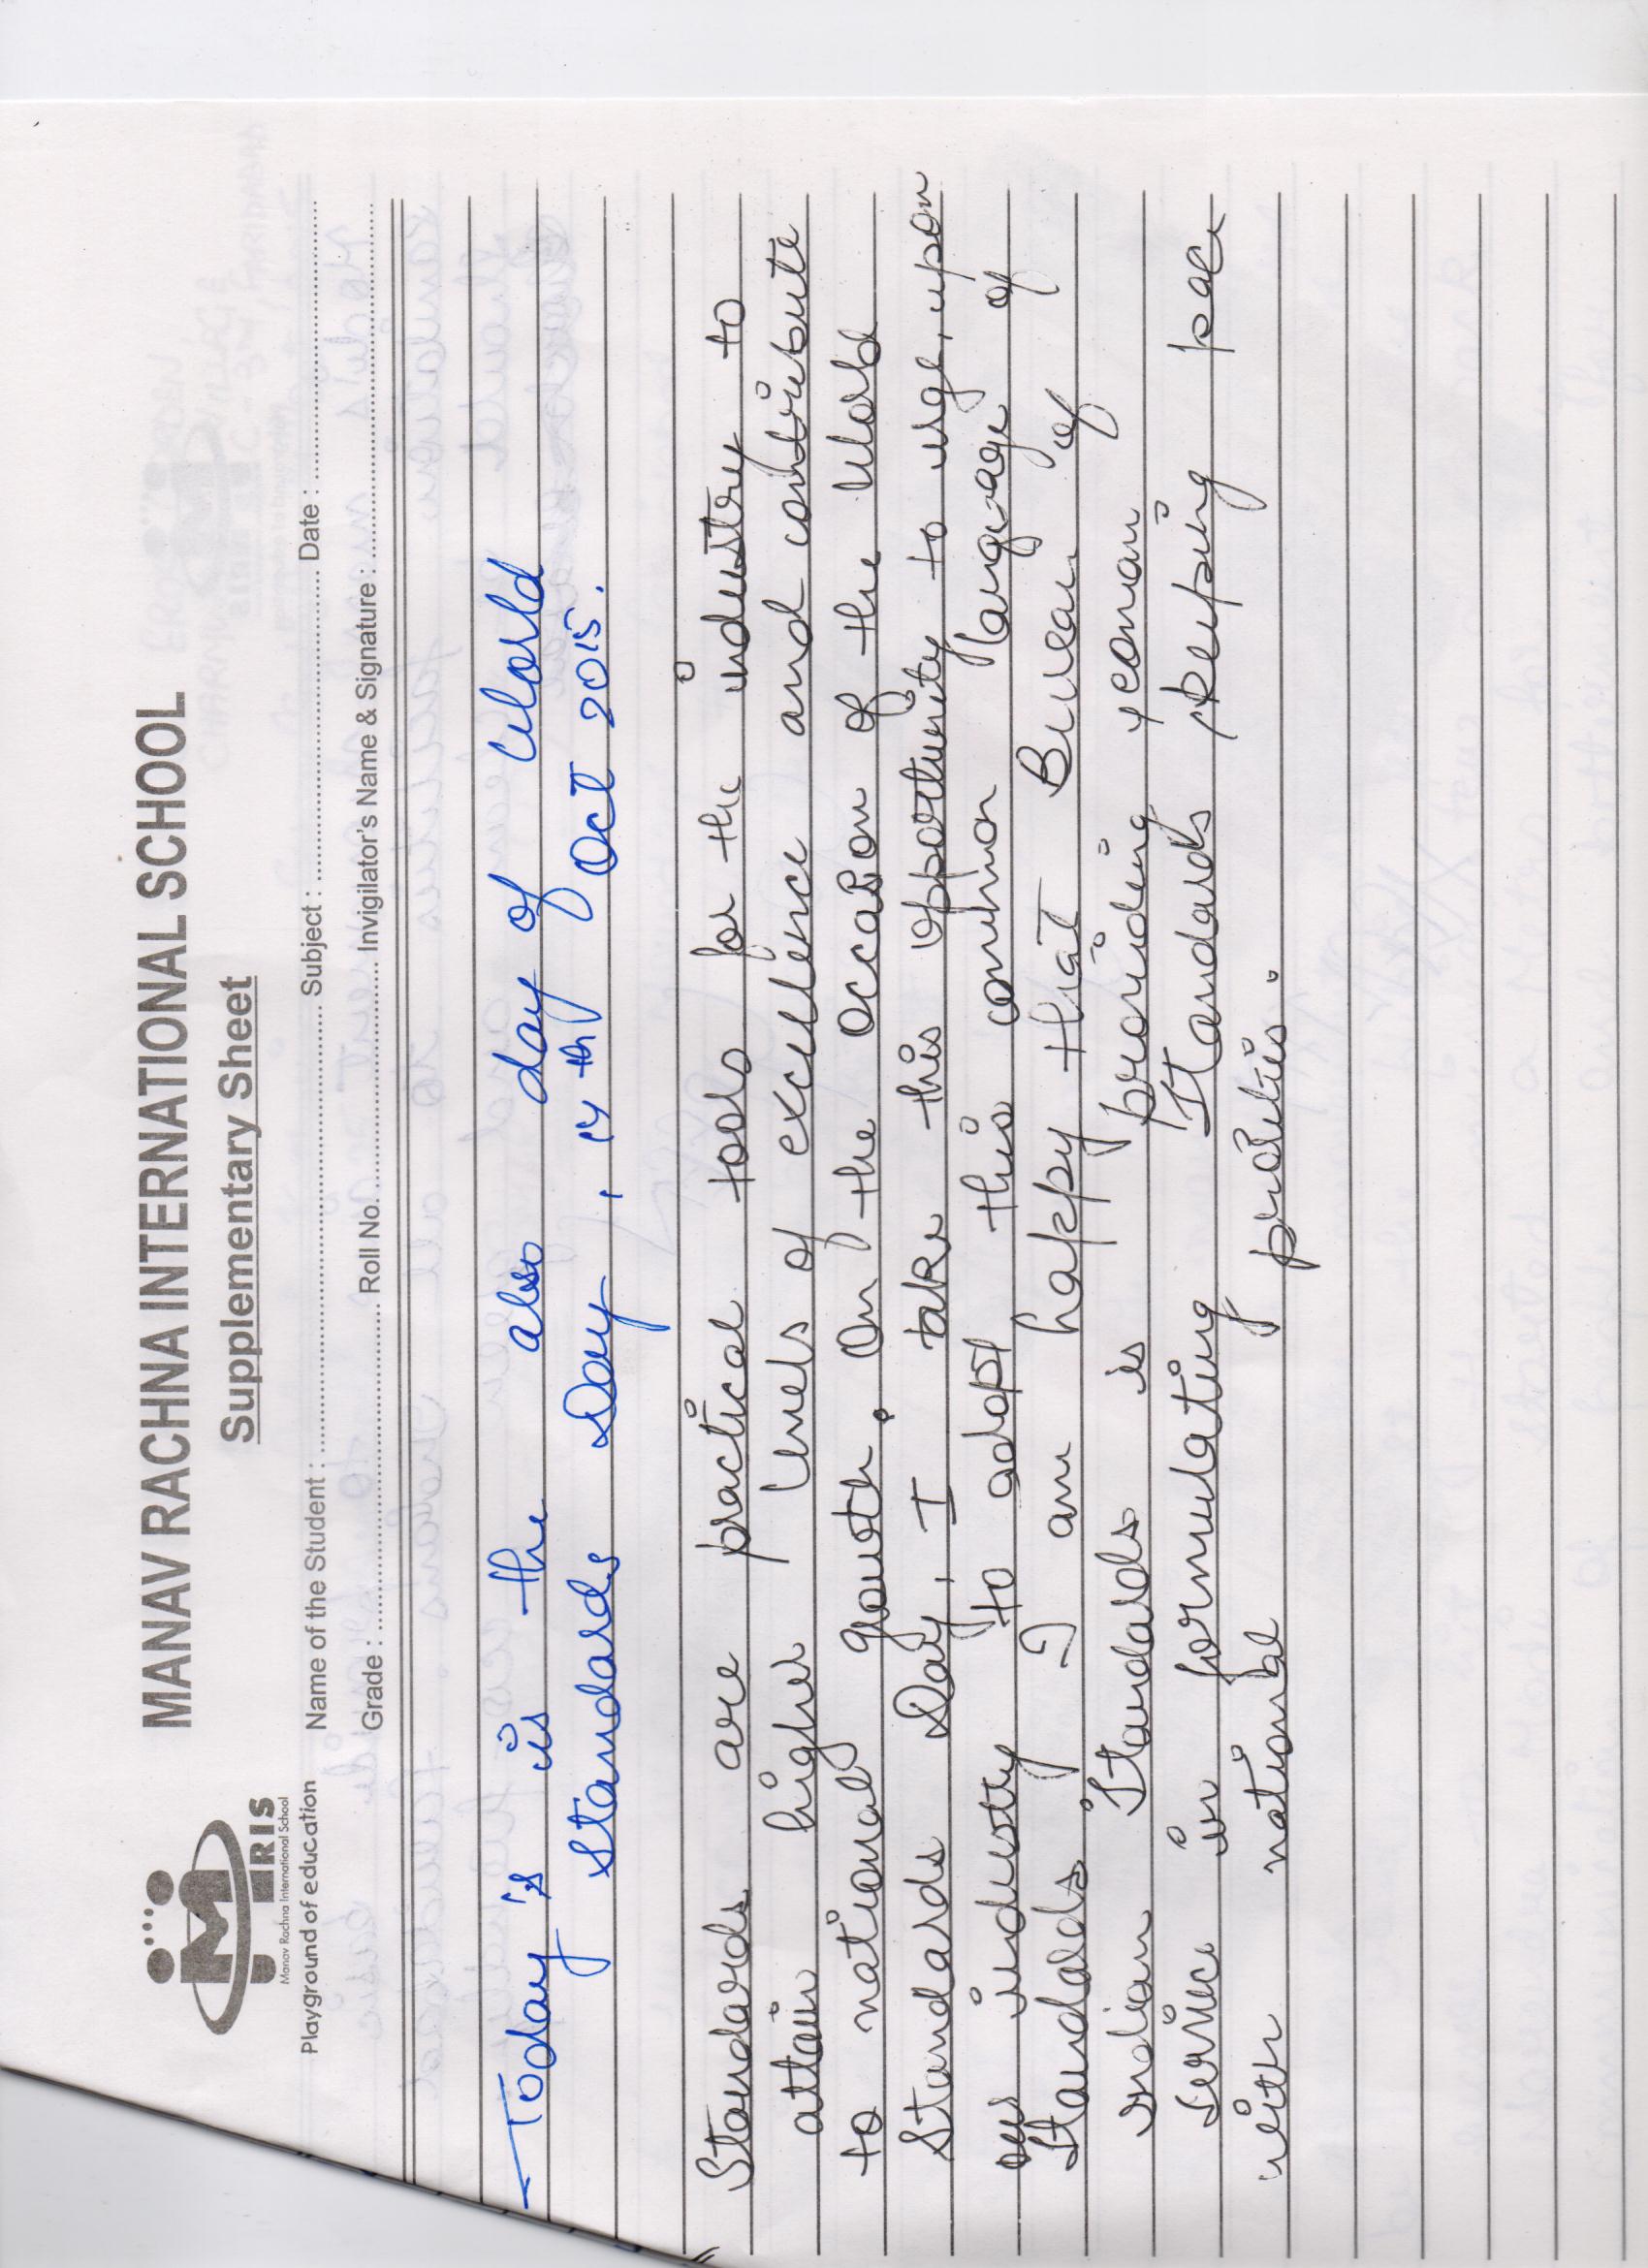 MANAV RACHNA INTERNATIONAL SCHOOL
Supplementary Sheet
MRIS
Manav Rachna International School
Playground of education
Name of the Student : Subject : Date :
Grade : Roll No. Invigilator's Name & Signature :
Today's is the also day of World
Standards Day, 14th Oct 2015.
"Standards are practical tools for the industry to
attain higher levels of excellence and contribute
to national growth. On the occasion of the World
Standards Day, I take this opportunity to urge, upon
our industry to adopt this common language of
Standards. I am happy that Bureau of
Indian Standards is providing yeoman
service in formulating Standards keeping pace
with national priorities.